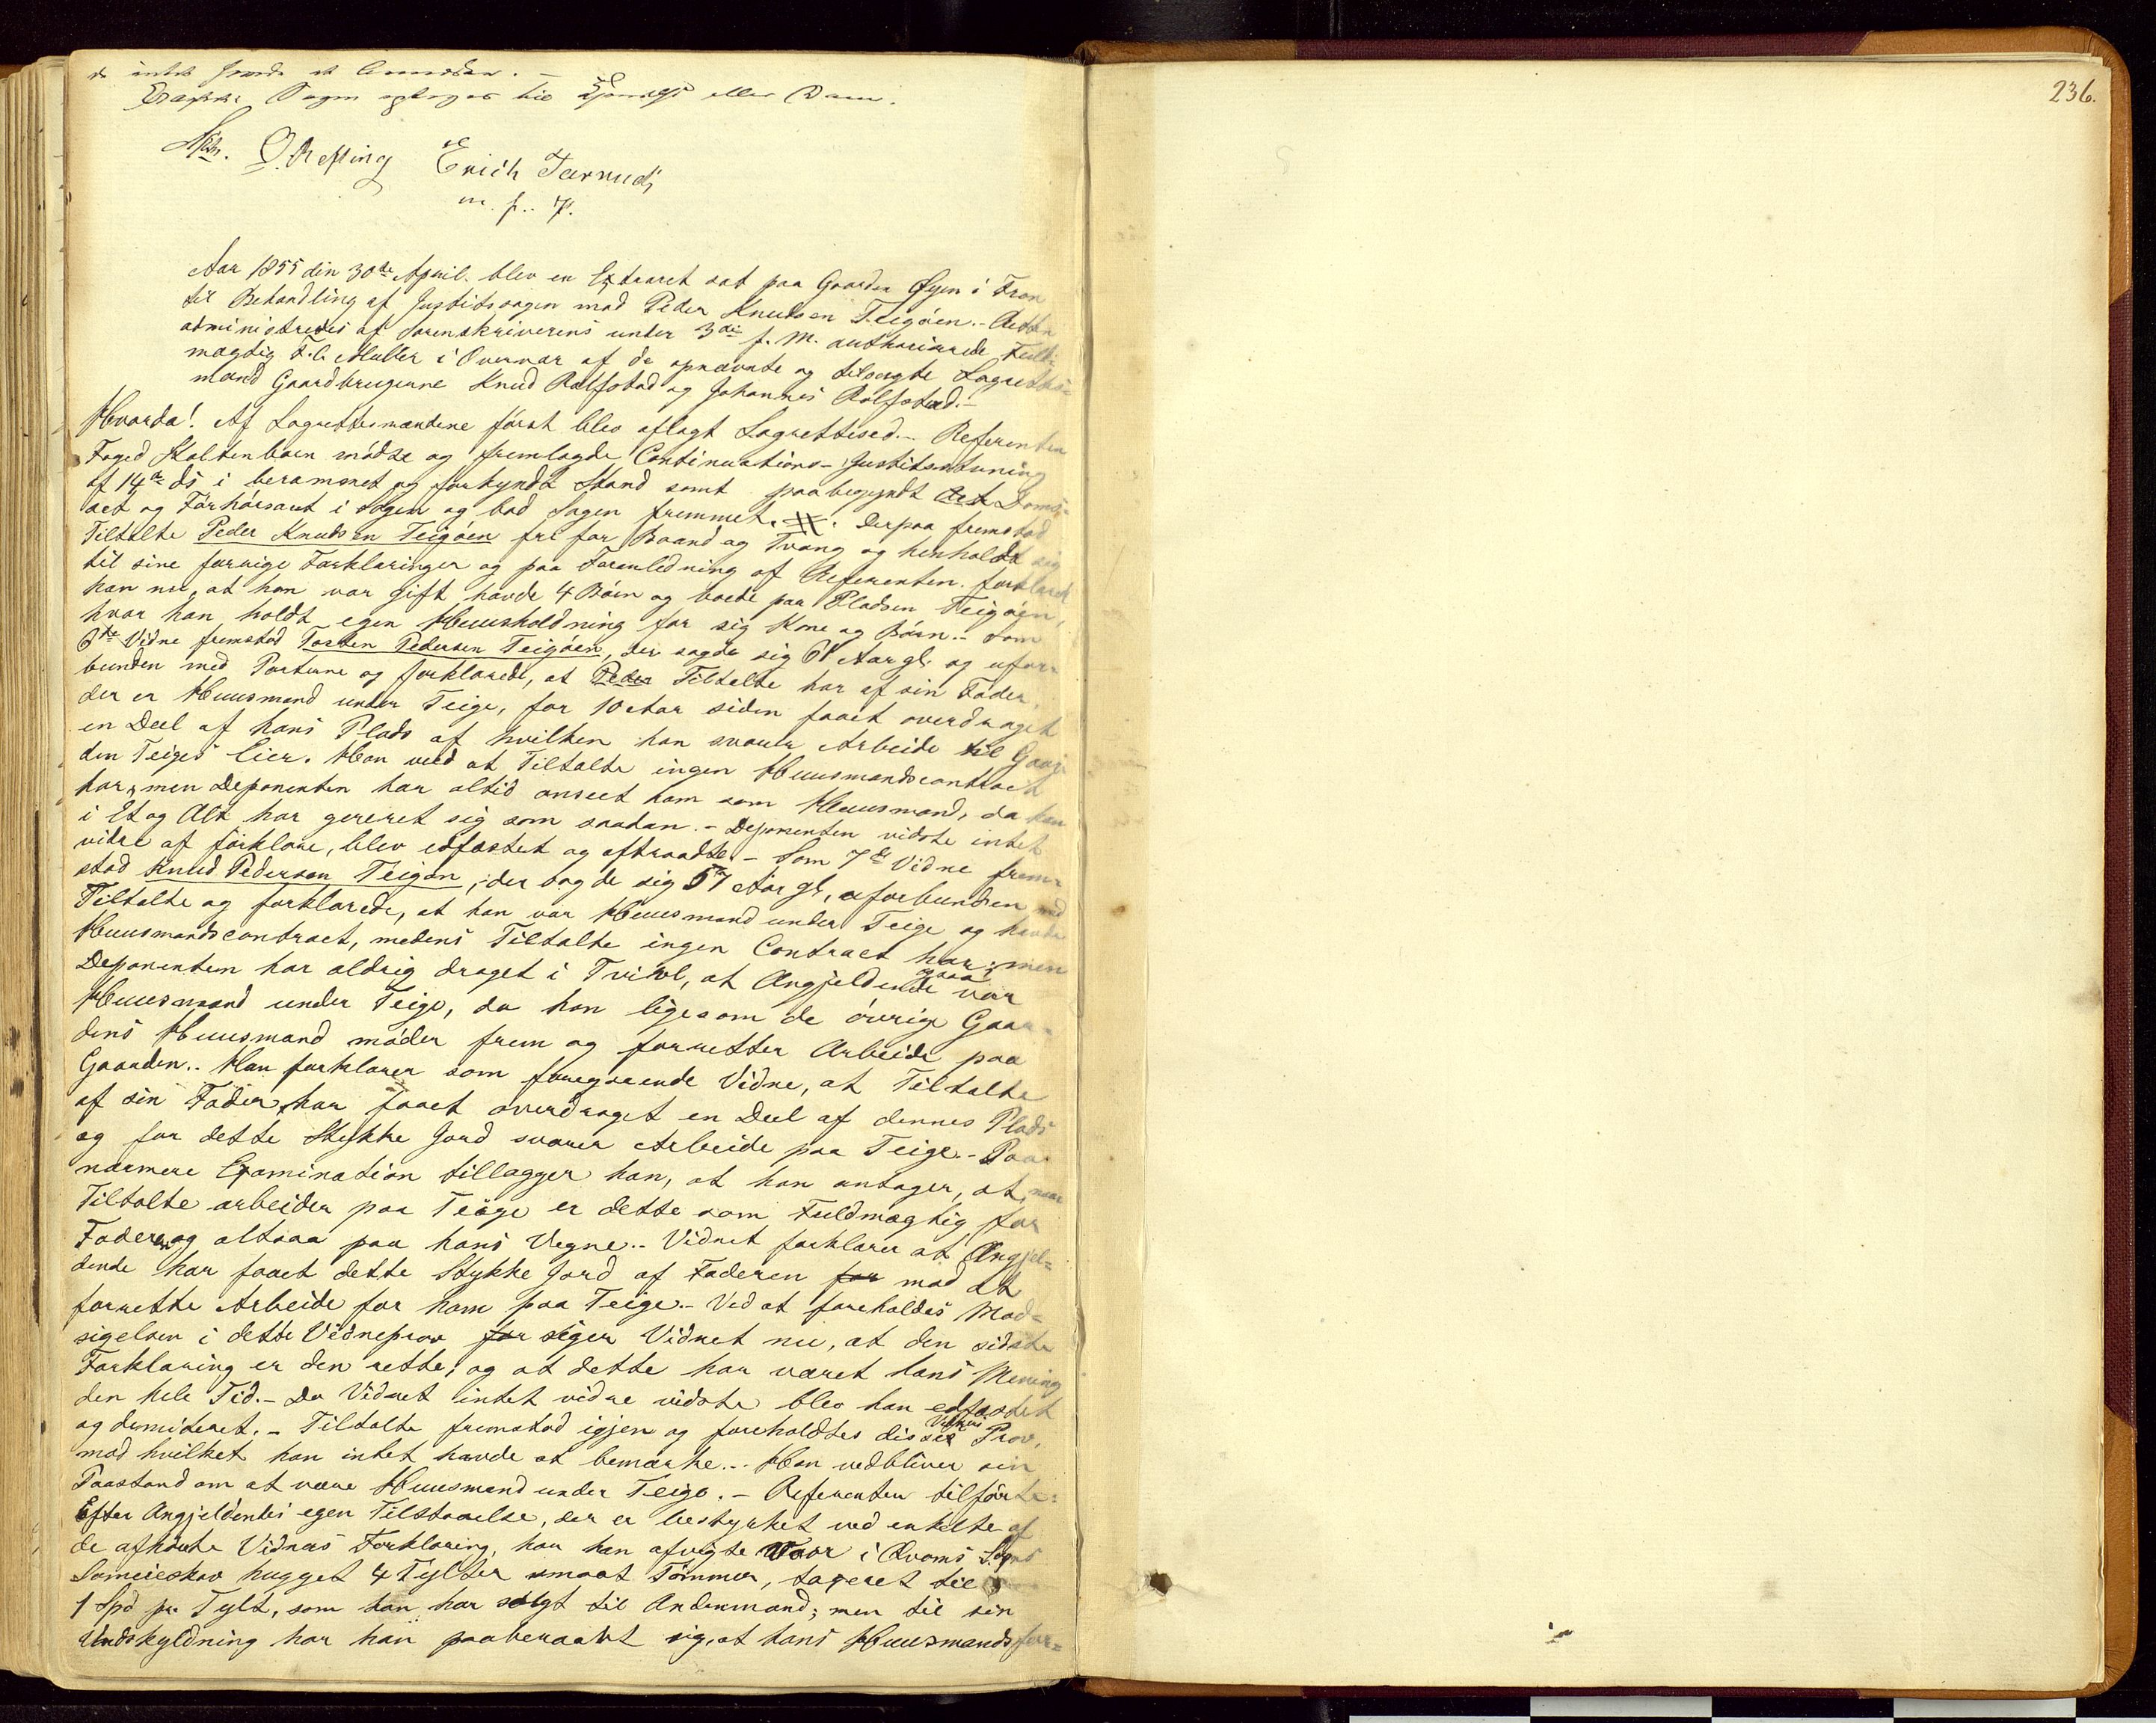 236.
Eragtes Sagen optages til Kjendelse eller Dom.
O. Refting Erich Tarrud
m. f. P.
Aar 1855 den 30de April blev en Extraret sat paa Gaarden Øyen i Fron
til Behandling af Justitssagen mod Peder Knudsen Teigøen.- Retten
administredes af Sorenskriverens under 3die f. M. authoriserede Fuld-
mægtig F. C. Müller i Overvær af de opnævnte og tilsagte Lagrettes-
mænd Gaardbrugerne Knud Rolfstad og Johannes Rolfstad.-
Hvorda! Af Lagrettesmændene først blev aflagt Lagrettesed.- Referenten
Foged Stoltenberg mødte og fremlagde Continuations-Justitsstævning
af 14de ds i berammet og forkyndt Stand samt paabegyndt Doms-
act og Forhørsact i Sagen og bad Sagen fremmet. Derpaa fremstod
Tiltalte Peder Knudsen Teigøen fri for Baand og Tvang og henholdt sig
til sine forrige Forklaringer og paa Foranledning af Referenten forklared
han nu, at han var gift havde 4 Børn og boede paa Pladsen Teigøen,
hvor han holdt egen Huusholdning for sig Kone og Børn.- Som
6te Vidne fremstod Torsten Pedersen Teigøen, der sagde sig 61 Aar gl. og ufor-
bunden med Parterne og forklarede, at Peder Tiltalte har af sin Fader,
der er Huusmand under Teige, for 10 Aar siden faaet overdraget
en Deel af hans Plads af hvilken han svarer Arbeide til Gaar-
den Teiges Eier. Han veed at Tiltalte ingen Huusmandscontract
har, men Deponenten har altid anseet ham som Huusmand, da han
i Et og Alt har gereret sig som saadan.- Deponenten vidste intet
videre at forklare, blev edfæstet og aftraadte.- Som 7de Vidne frem-
stod Knud Pedersen Teigøn, der sagde sig 57 Aar gl., uforbunden med
Tiltalte og forklarede, at han var Huusmand under Teige og havde
Huusmandscontract, medens Tiltalte ingen Contract har; men
Deponenten har aldrig draget i Tvivl, at Angjeldende ogsaa var
Huusmand under Teige, da han ligesom de øvrige Gaar-
dens Huusmænd møder frem og forretter Arbeide paa
Gaarden.- Han forklarer som foregaaende Vidne, at Tiltalte
af sin Fader har faaet overdraget en Deel af dennes Plads
og for dette Stykke Jord svarer Arbeide paa Teige.- Paa
nærmere Examination tillægger han, at han antager, at, naar
Tiltalte arbeider paa Teige er dette som Fuldmægtig for
Faderen og altsaa paa hans Vegne.- Vidnet forklarer at Angjel-
dende har faaet dette Stykke Jord af Faderen for mod at
forrette Arbeide for ham paa Teige.- Ved at foreholdes Mod-
sigelsen i dette Vidneprov for siger Vidnet nu, at den sidste
Forklaring er den rette, og at dette har været hans Mening
den hele Tid.- Da Vidnet intet videre vidste blev han edfæstet
og demiteret.- Tiltalte fremstod igjen og foreholdtes disse Vidners Prov,
mod hvilket han intet havde at bemærke.- Han vedbliver sin
Paastand om at være Huusmand under Teige.- Referenten tilførte:
Efter Angjeldendes egen Tilstaaelse, der er bestyrket ved enkelte af
de afhørte Vidners Forklaring, har han afvigte Vaar i Qvams Sogns
Sameieskov hugget 4 Tylter smaat Tømmer, taxeret til
1 Spd pr. Tylt, som han har solgt til Andenmand; men til sin
Undskyldning har han paaberaabt sig, at hans Huusmandsfor-